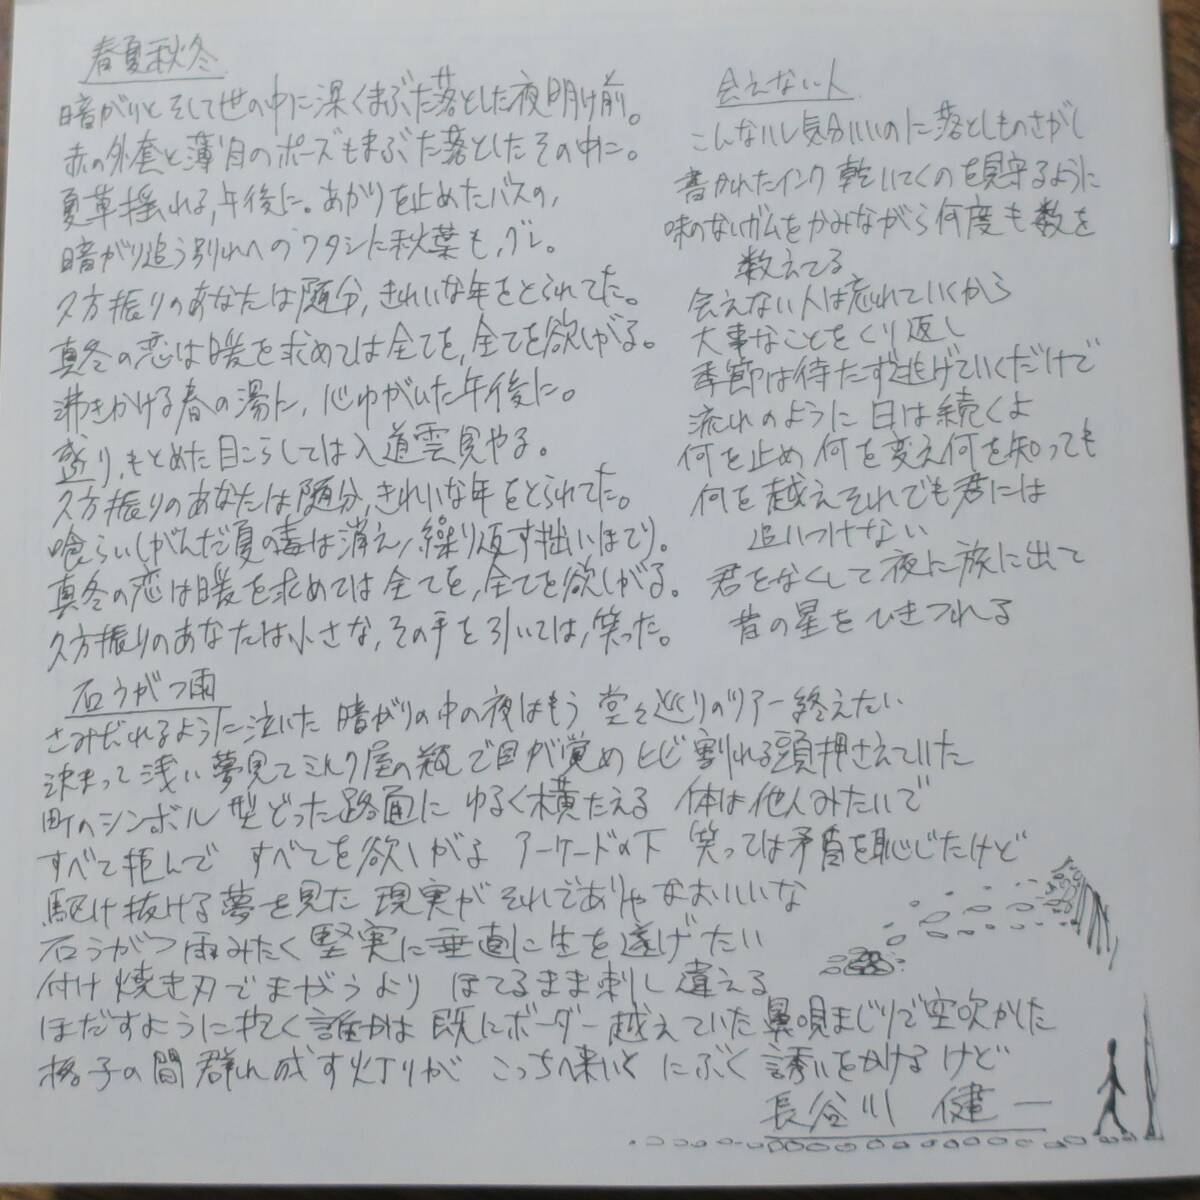 春夏秋冬
暗がりと そして世の中に深くまぶた落とした夜明け前。
赤の外套と薄目のポーズもまぶた落としたその中に。
夏草揺れる,午後に。あかりを止めたバスの,
暗がり追う別れへのワタシに秋葉も,グレ。
久方振りのあなたは随分,きれいな年をとられてた。
真冬の恋は暖を求めては全てを,全てを欲しがる。
沸きかける春の湯に,心ゆがいた午後に。
盛り,もとめた目こらしては入道雲見やる。
久方振りのあなたは随分,きれいな年をとられてた。
喰らい(がんだ夏の毒は消え/繰り返す拙いほて)。
真冬の恋は暖を求めては全てを,全てを欲しがる。
久方振りのあなたは小さな,その手を引いては,笑った。
会えない人
こんないい気分いいのに落としものさがし
書かれたインク乾いてくのを見守るように
味のないガムをかみながら何度も数を
数えてる
会えない人は忘れていくから
大事なことをくり返し
季節は待たず逃げていくだけで
流れのように日は続くよ
何を止め何を変え何を知っても
何を越えそれでも君には
追いつけない
君をなくして夜に旅に出て
昔の星をひきつれる
石うがつ雨
さみだれるように泣いた 暗がりの中の夜はもう 堂々巡りのツアー終えたい
決まって浅い夢見てミルク屋の瓶で目が覚め ヒビ割れる頭押さえていた
町のシンボル型どった路面に ゆるく横たえる 体は他人みたいで
すべて拒んで すべてを欲しがる アーケードの下 笑っては矛盾を恥じたけど
駆け抜ける夢を見た 現実が それでありゃなおいいな
石うがつ雨みたく 堅実に垂直に生を遂げたい
付け焼き刃でまがうより ほてるまま刺し違える
ほだすように抱く誰かは 既にボーダー越えていた 鼻唄まじりで空吹かした
格子の間 群れ成す灯りが こっちへ来いと にぶく誘いをかけるけど
長谷川 健一